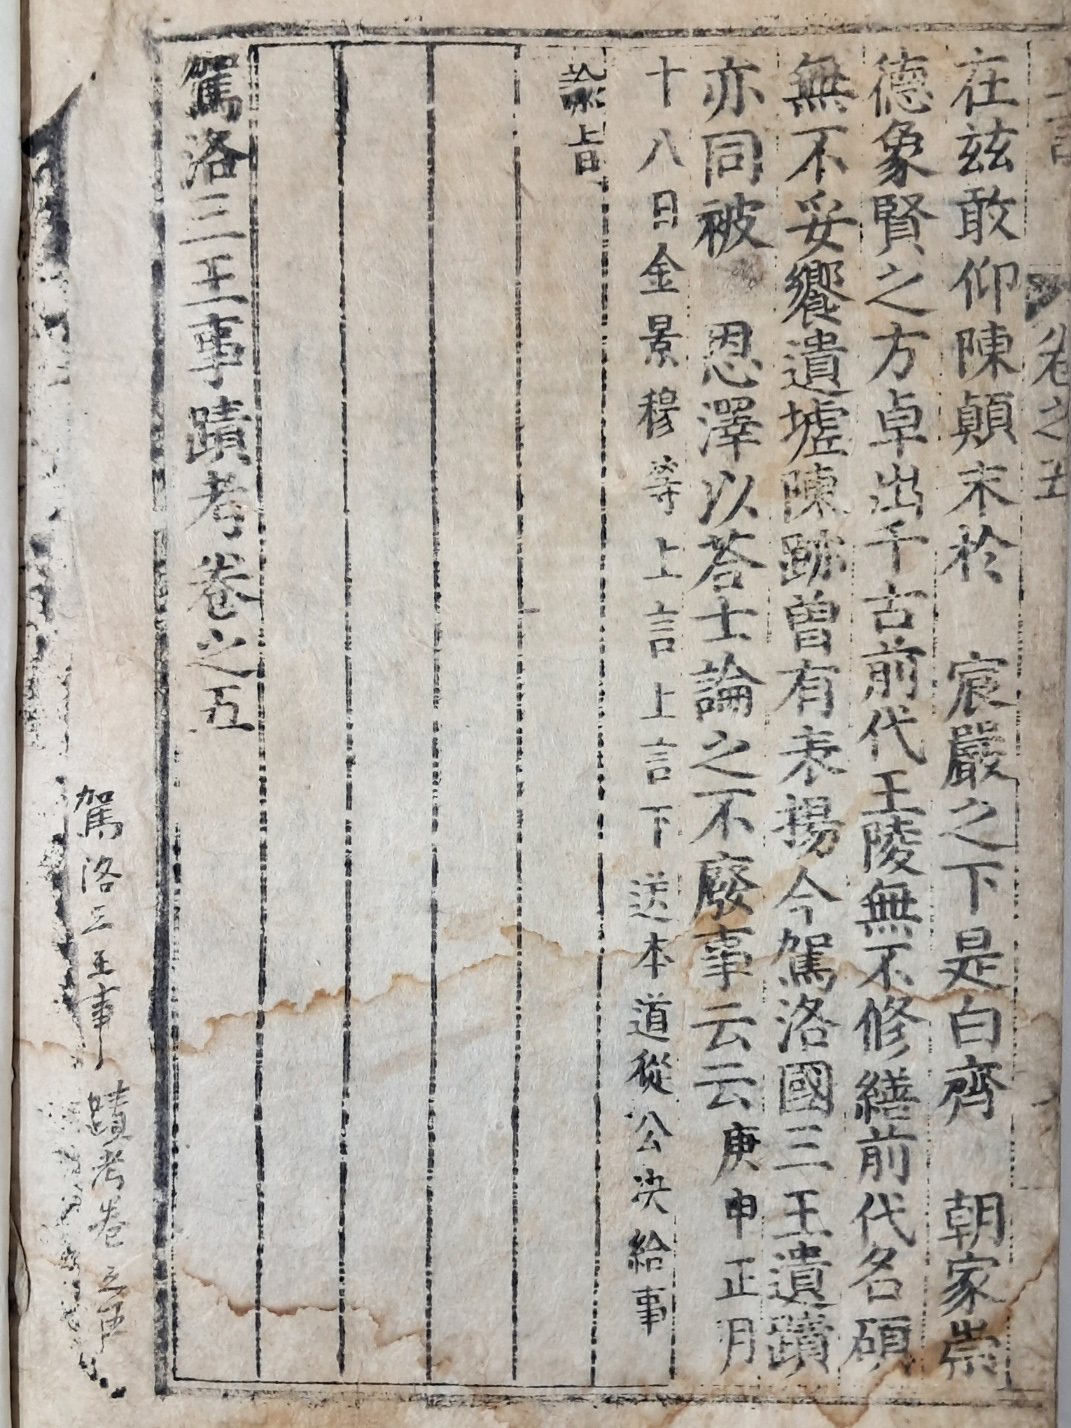 卷之五
在玆敢仰陳顚末於　宸嚴之下是白齊　朝家崇
德象賢之方卓出千古前代王陵無不修繕前代名碩
無不妥饗遺墟陳跡曾有表揚今駕洛國三王遺蹟
亦同被　恩澤以荅士論之不廢事云云庚申正月
十八日金景穆等上言上言下送本道從公决給事
諭旨
駕洛三王事蹟考卷之五
駕洛三王事蹟考卷之